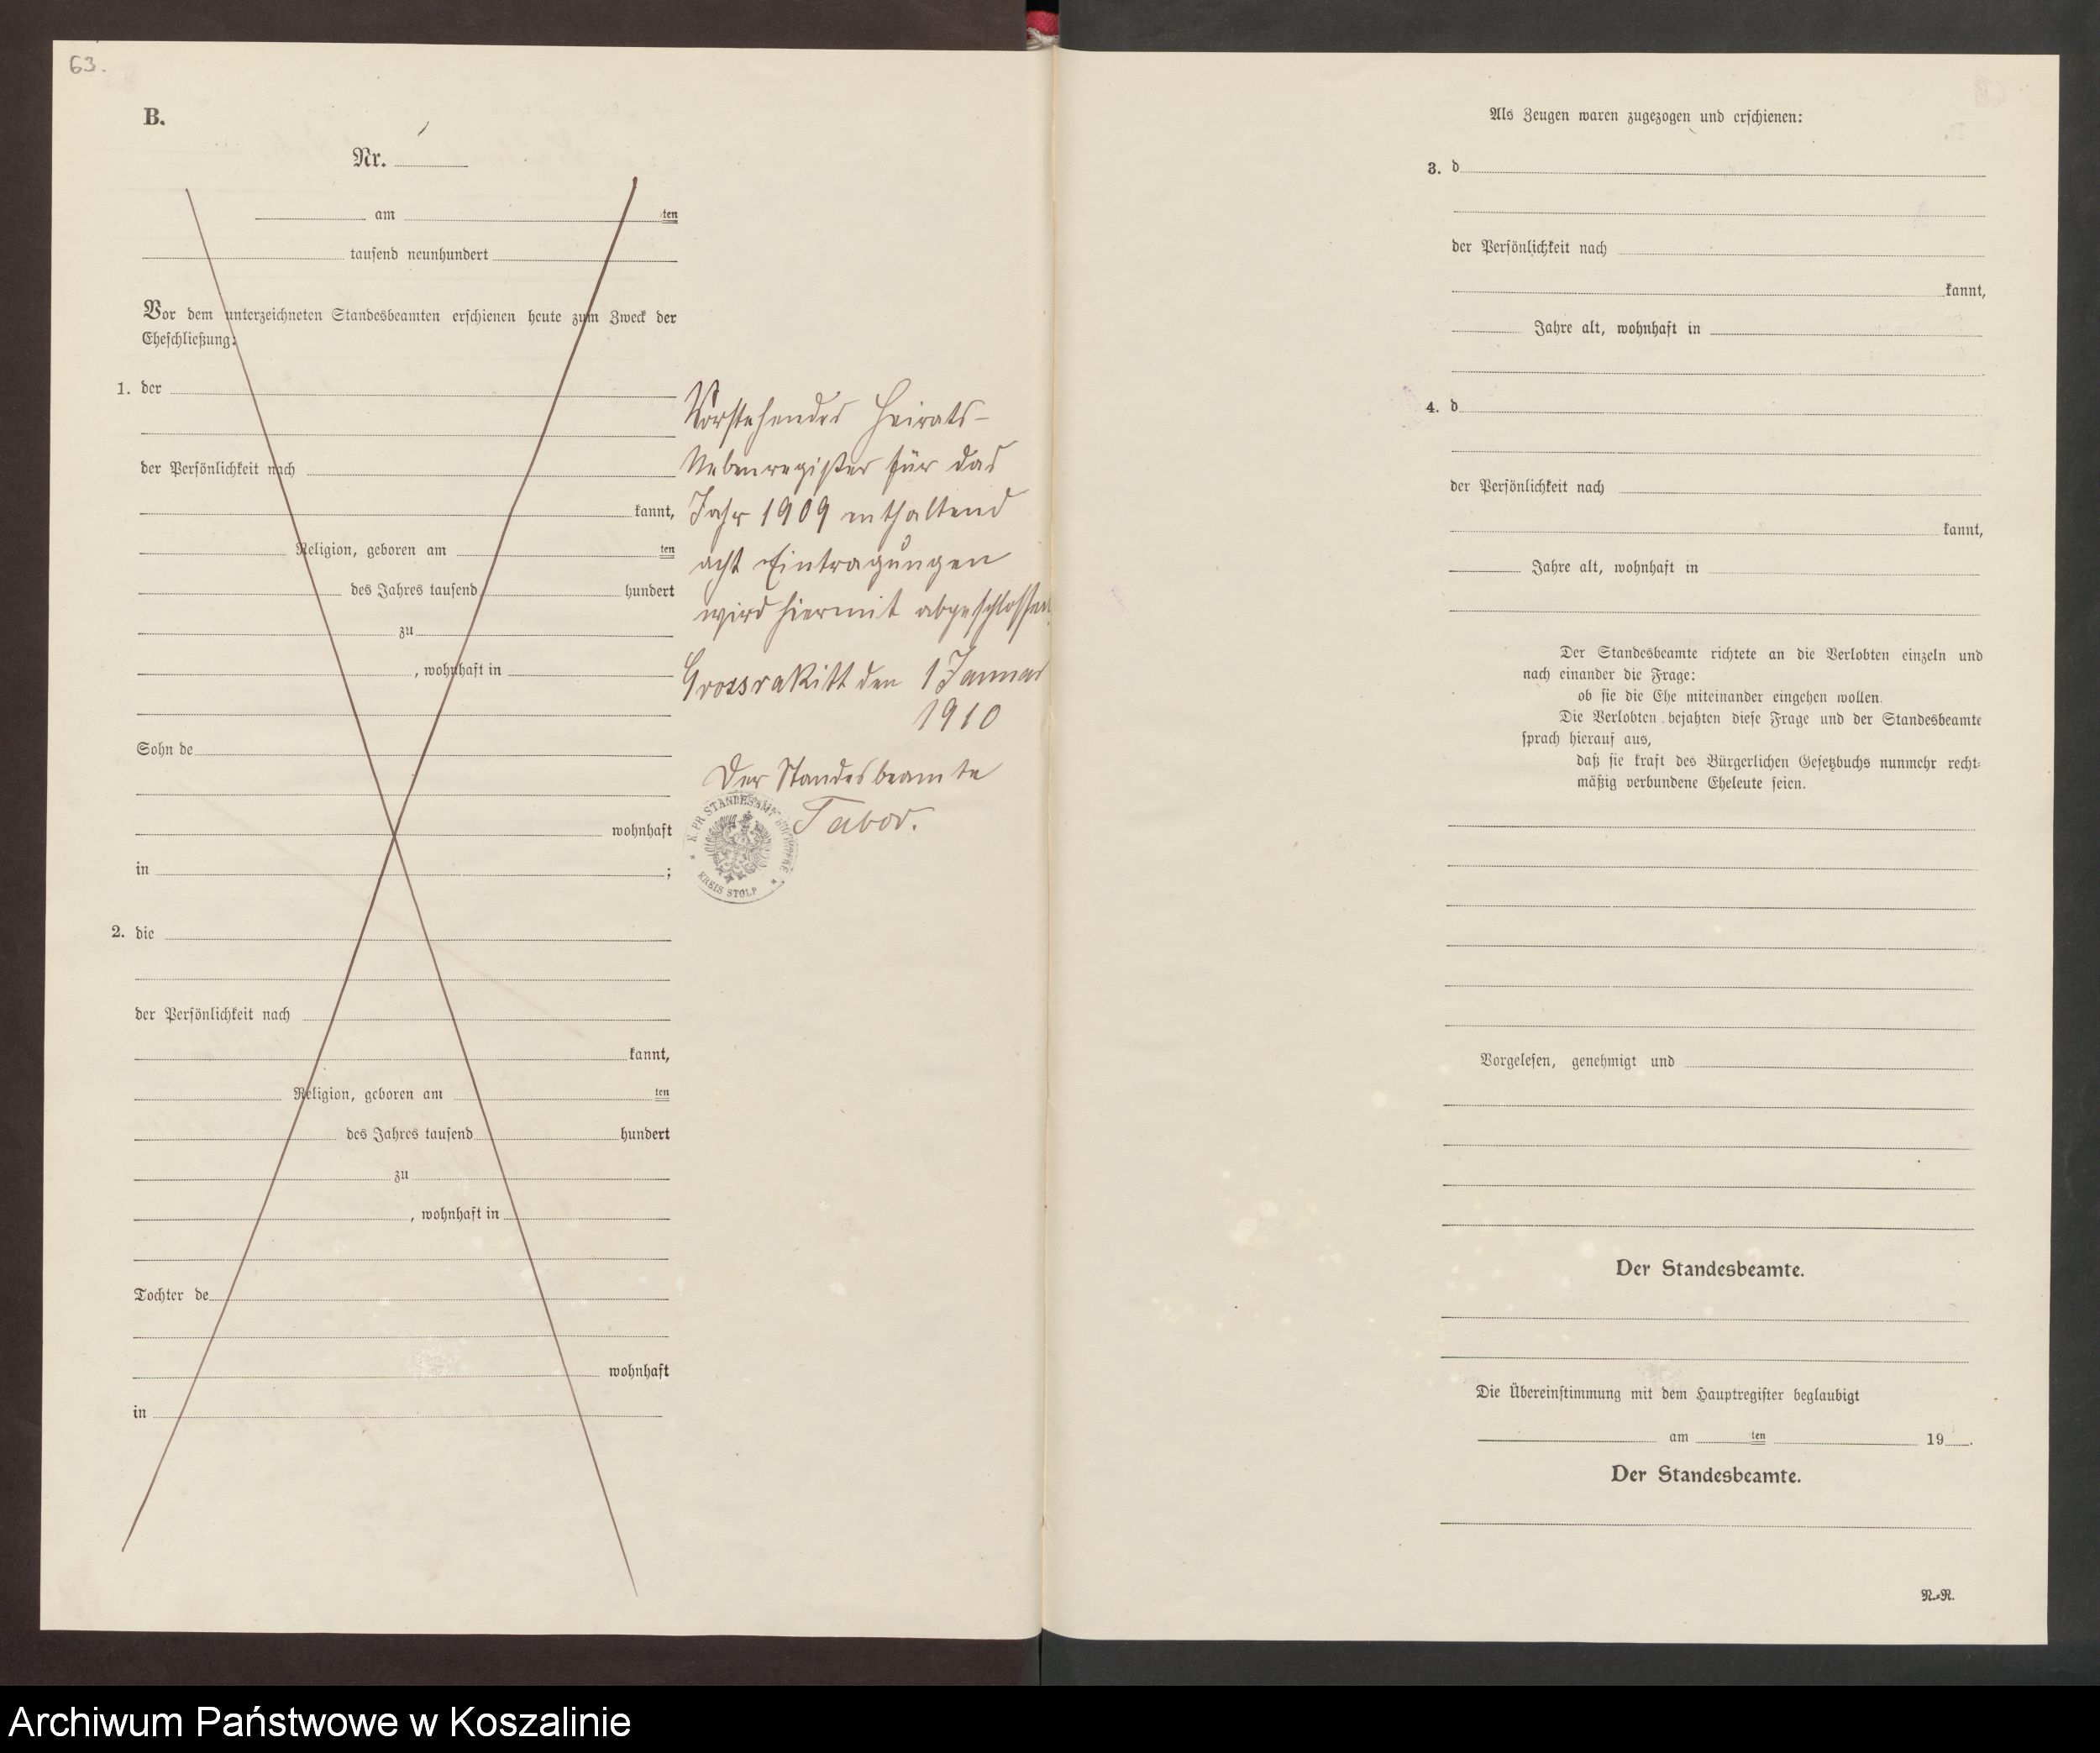 63.
B.
Nr.
am ten
tausend neunhundert
Vor dem unterzeichneten Standesbeamten erschienen heute zum Zweck der
Eheschließung:
1. der
der Persönlichkeit nach
kannt,
Religion, geboren am ten
des Jahres tausend hundert
zu
, wohnhaft in
Sohn de
wohnhaft
in ;
2. die
der Persönlichkeit nach
kannt,
Religion, geboren am ten
des Jahres tausend hundert
zu
, wohnhaft in
Tochter de
wohnhaft
in
Vorstehendes Heirats-
Nebenregister für das
Jahr 1909 enthaltend
acht Eintragungen
wird hiermit abgeschlossen.
Grossrakitt den 1 Januar
1910
Der Standesbeamte
Tabor.
K. PR. STANDESAMT
KREIS STOLP
Als Zeugen waren zugezogen und erschienen:
3. d
der Persönlichkeit nach
kannt,
Jahre alt, wohnhaft in
4. d
der Persönlichkeit nach
kannt,
Jahre alt, wohnhaft in
Der Standesbeamte richtete an die Verlobten einzeln und
nach einander die Frage:
ob sie die Ehe miteinander eingehen wollen.
Die Verlobten bejahten diese Frage und der Standesbeamte
sprach hierauf aus,
daß sie kraft des Bürgerlichen Gesetzbuchs nunmehr recht-
mäßig verbundene Eheleute seien.
Vorgelesen, genehmigt und
Der Standesbeamte.
Die Übereinstimmung mit dem Hauptregister beglaubigt
am ten 19 .
Der Standesbeamte.
N.-R.
Archiwum Państwowe w Koszalinie